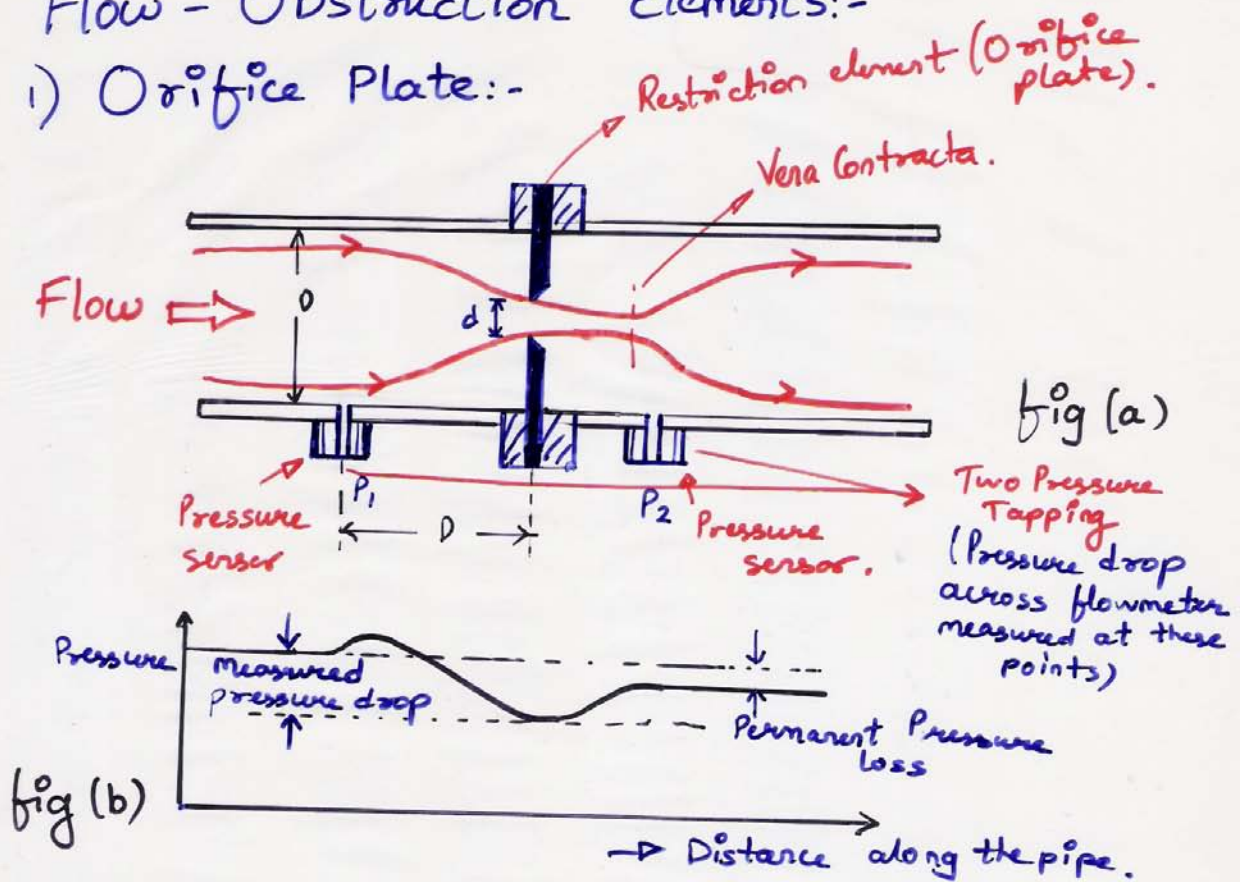 Flow - Obstruction Elements:-
1) Orifice Plate:-
Restriction element (Orifice
plate).
Vena Contracta.
Flow
D
d
fig (a)
P1
P2
D
Pressure
sensor
Pressure
sensor.
Two Pressure
Tapping
(Pressure drop
across flowmeter
measured at these
points)
Pressure
measured
pressure drop
Permanent Pressure
Loss
fig (b)
Distance along the pipe.